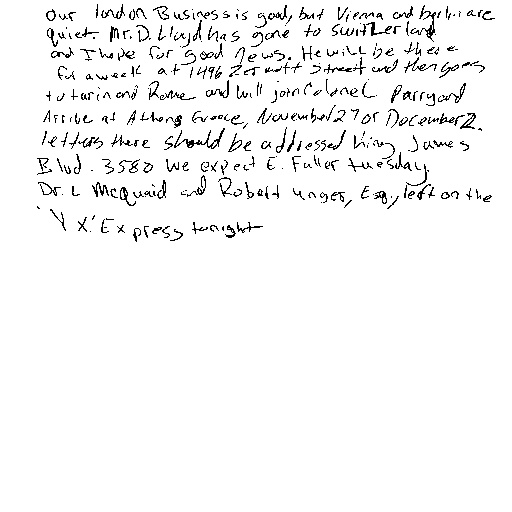 our london Business is good, but Vienna and berlin are
quiet. Mr. D. Lloyd has gone to switzerland
and I hope for good news. He will be there
for a week at 1496 Zermott Street and then goes
to turin and Rome and will join Colonel Parry and
Arrive at Athens Greece, November 27 or December 2.
letters there should be addressed King James
Blvd. 3580 We expect E. Fuller tuesday.
Dr. L McQuaid and Robert unger, Esq., left on the
'Y X.' Express tonight